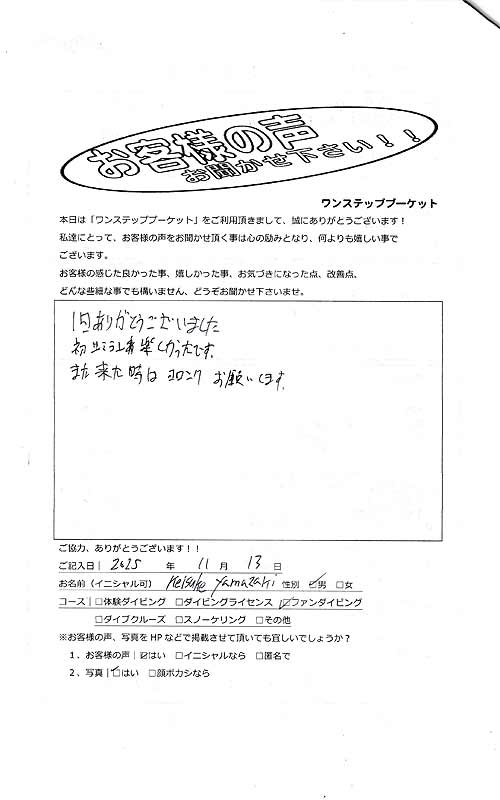 お客様の声
お聞かせ下さい！！
ワンステッププーケット
本日は「ワンステッププーケット」をご利用頂きまして、誠にありがとうございます！
私達にとって、お客様の声をお聞かせ頂く事は心の励みとなり、何よりも嬉しい事で
ございます。
お客様の感じた良かった事、嬉しかった事、お気づきになった点、改善点、
どんな些細な事でも構いません、どうぞお聞かせ下さいませ。
1日ありがとうございました
初 楽しかったです。
また来た時は ヨロシク お願いします。
ご協力、ありがとうございます！！
ご記入日｜2025 年 11 月 13 日
お名前（イニシャル可）Keisuke Yamazaki 性別 ☑男 □女
コース｜□体験ダイビング □ダイビングライセンス ☑ファンダイビング
□ダイブクルーズ □スノーケリング □その他
※お客様の声、写真をHPなどで掲載させて頂いても宜しいでしょうか？
1．お客様の声｜☑はい □イニシャルなら □匿名で
2．写真｜☑はい □顔ボカシなら